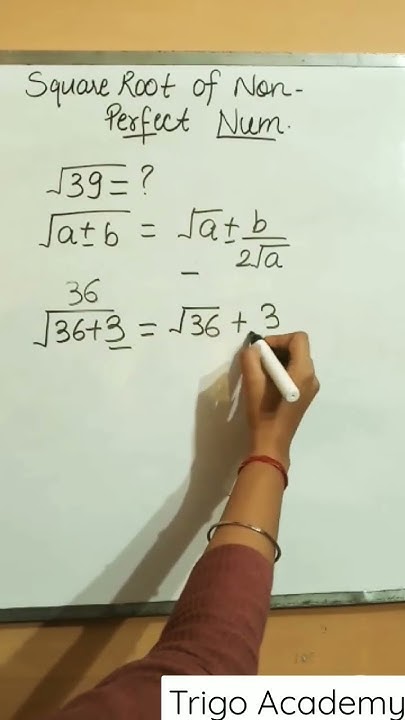 Square Root of Non-
Perfect Num.
√39 = ?
√a±b = √a ± b/2√a
36
√36+3 = √36 + 3
Trigo Academy